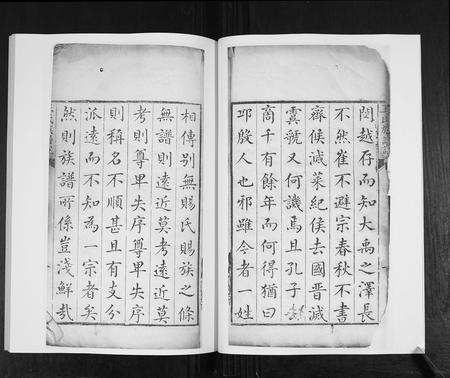 閩越存而知大禹之澤長
不然崔不避宗春秋不書
齊侯滅萊紀侯去國晋滅
虞虢又何譏焉且孔子
商千有餘年而何得猶曰
邛殷人也邪雖今者一姓
相傳别無賜氏賜族之條
無譜則遠近莫考遠近莫
考則尊卑失序尊卑失序
則稱名不順甚且有支分
派遠而不知為一宗者矣
然則族譜所係豈淺鮮哉